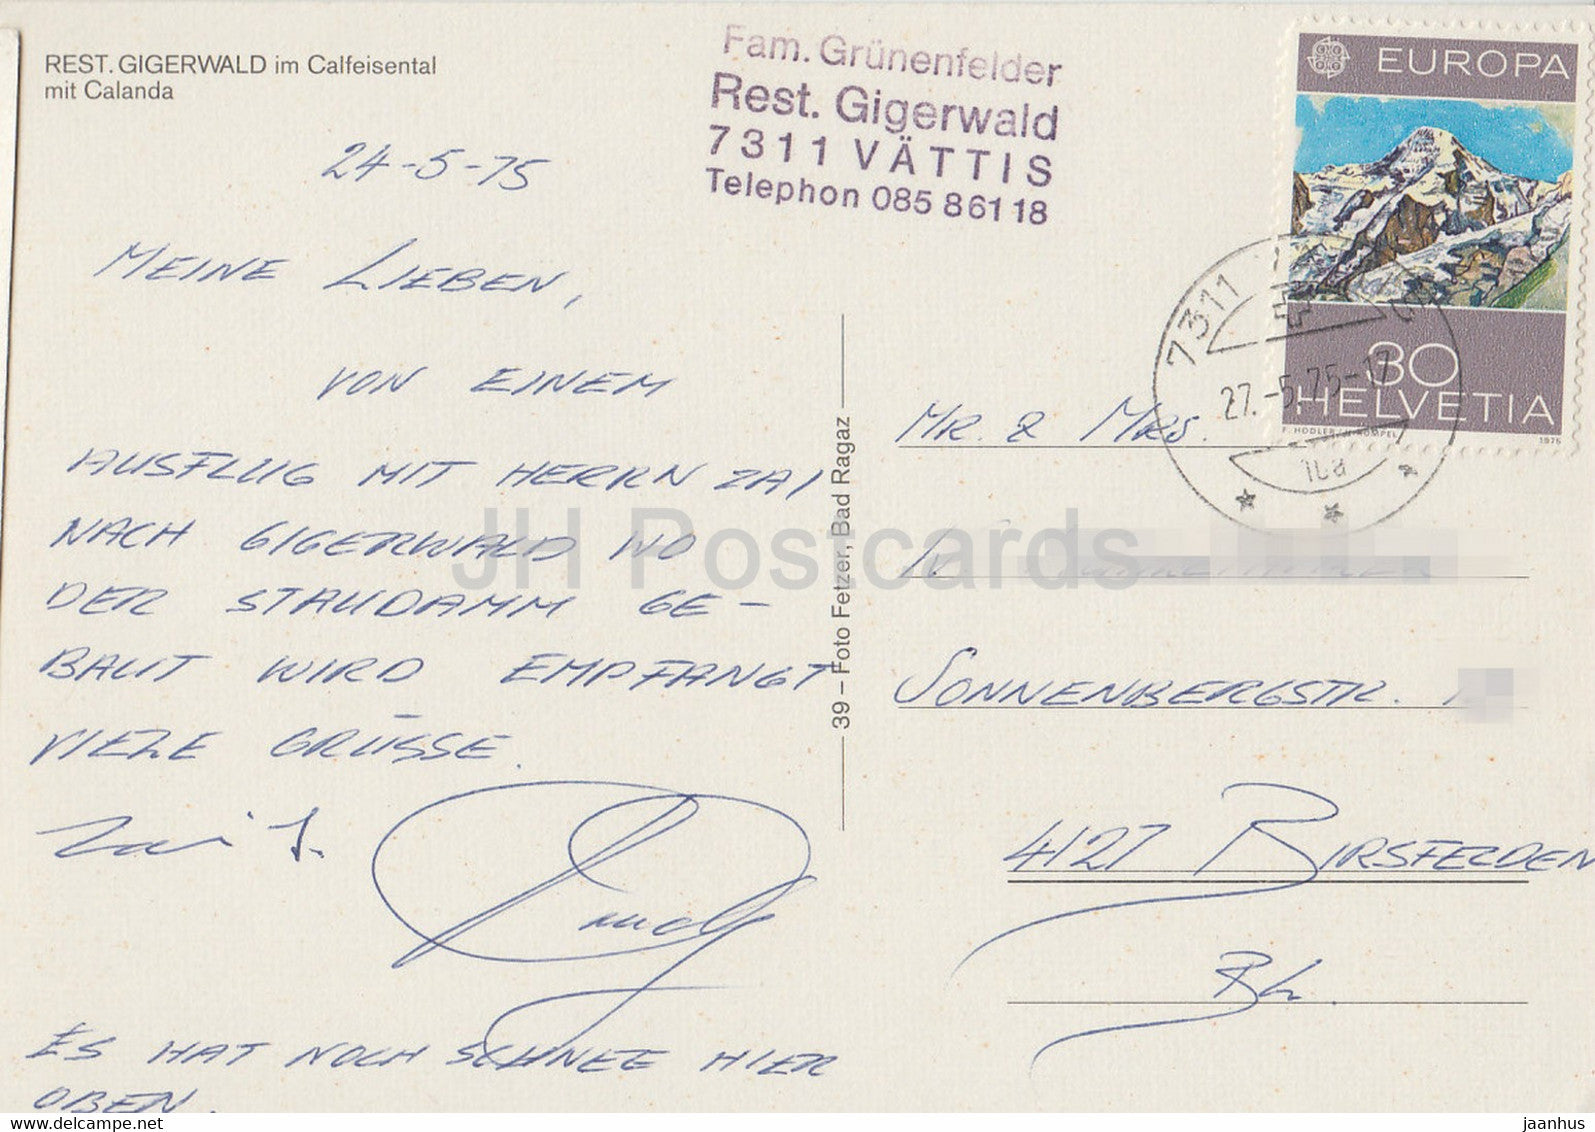 REST. GIGERWALD im Calfeisental
mit Calanda
Fam. Grünenfelder
Rest. Gigerwald
7311 VÄTTIS
Telephon 085 86118
EUROPA
30
HELVETIA
F. HODLER
1975
7311
27.-5.75-17
24-5-75
MEINE LIEBEN,
VON EINEM
AUSFLUG MIT HERRN ZAI
NACH GIGERWALD WO
DER STAUDAMM GE-
BAUT WIRD EMPFANGT
VIELE GRÜSSE.
ES HAT NOCH SCHNEE HIER
OBEN.
39 – Foto Fetzer, Bad Ragaz
MR. & MRS.
SONNENBERGSTR.
4127 BIRSFELDEN
BL.
JH Postcards
www.delcampe.net
jaanhus